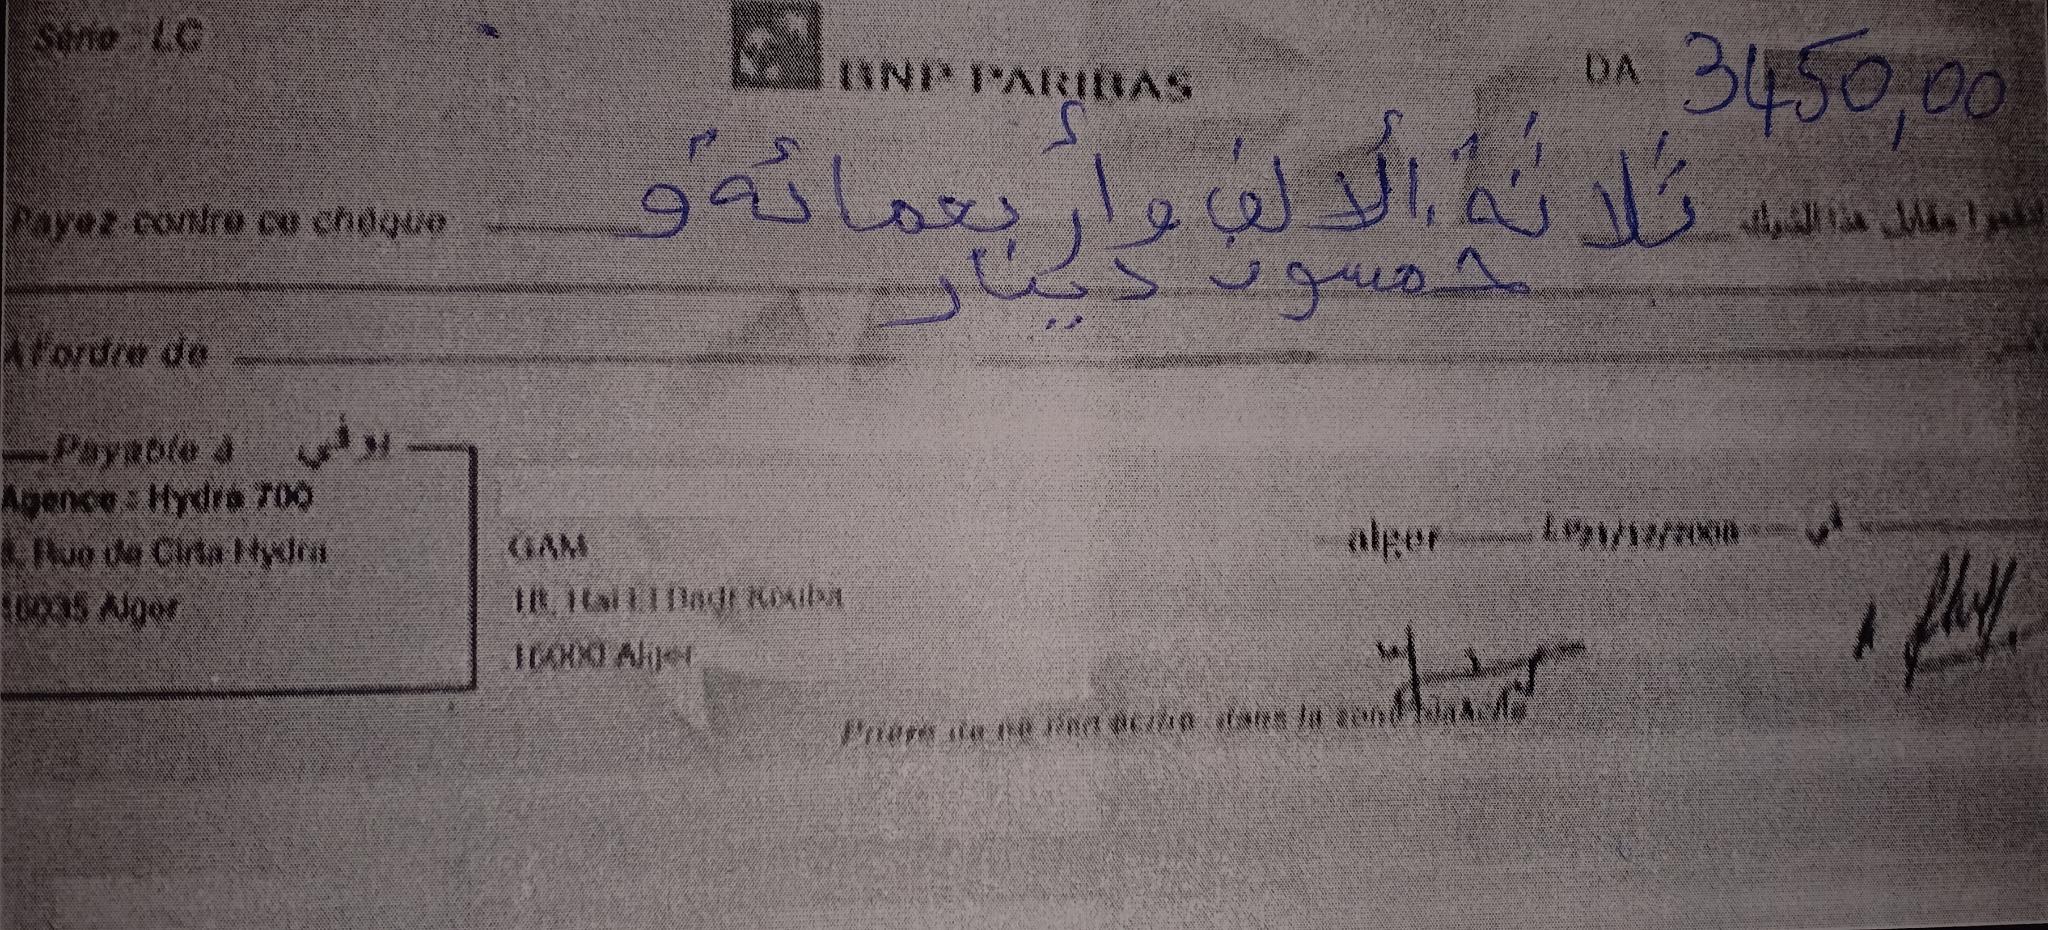 Série : LC
BNP PARIBAS
DA 3450,00
Payez contre ce chèque ثلاثة ألالف وأربعمائة و مقابل هذا الشيك
خمسون دينار
A l'ordre de
Payable à يوفي
Agence : Hydra 700
Rue de Cirta Hydra
16035 Alger
GAM
18, Hai El Badr Kouba
16000 Alger
alger في
Prière de ne rien écrire dans la zone blanche